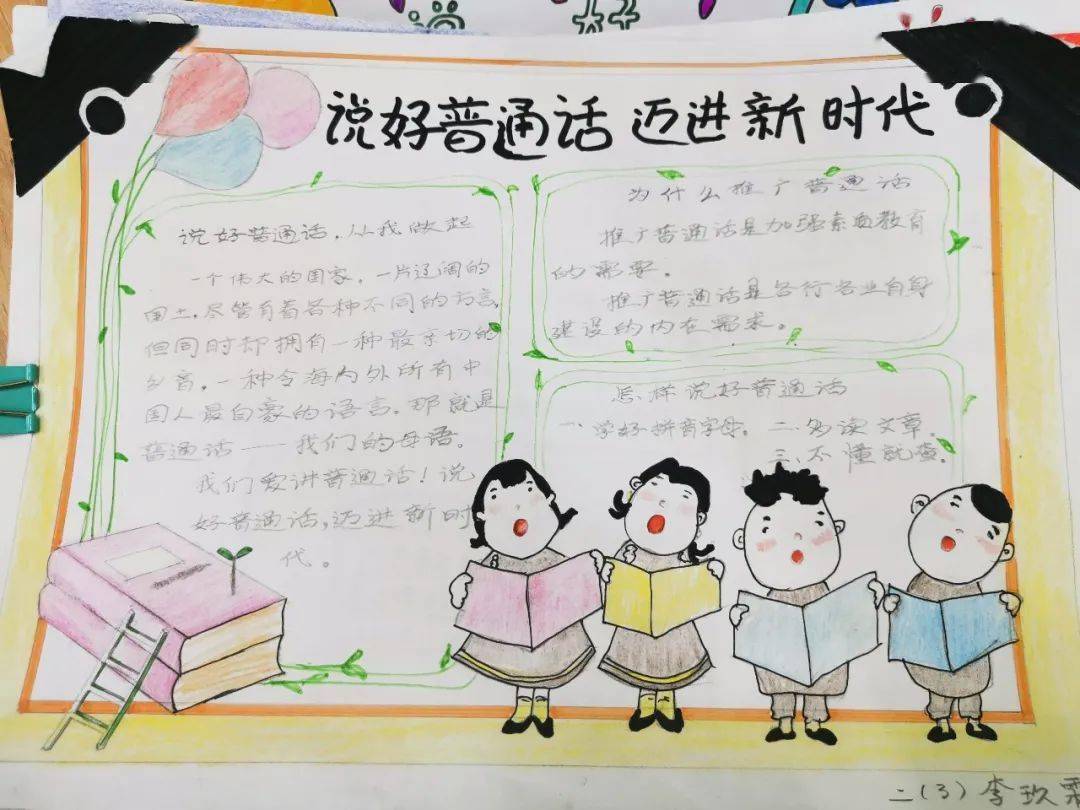 说好普通话 迈进新时代
说好普通话,从我做起
一个伟大的国家,一片辽阔的
国土,尽管有着各种不同的方言,
但同时却拥有一种最亲切的
乡音,一种令海内外所有中
国人最自豪的语言,那就是
普通话——我们的母语。
我们爱讲普通话!说
好普通话,迈进新时
代。
为什么推广普通话
推广普通话是加强素质教育
的需要。
推广普通话是各行各业自身
建设的内在需求。
怎样说好普通话
一、学好拼音字母。二、多读文章。
三、不懂就查。
二(3) 李玖栗